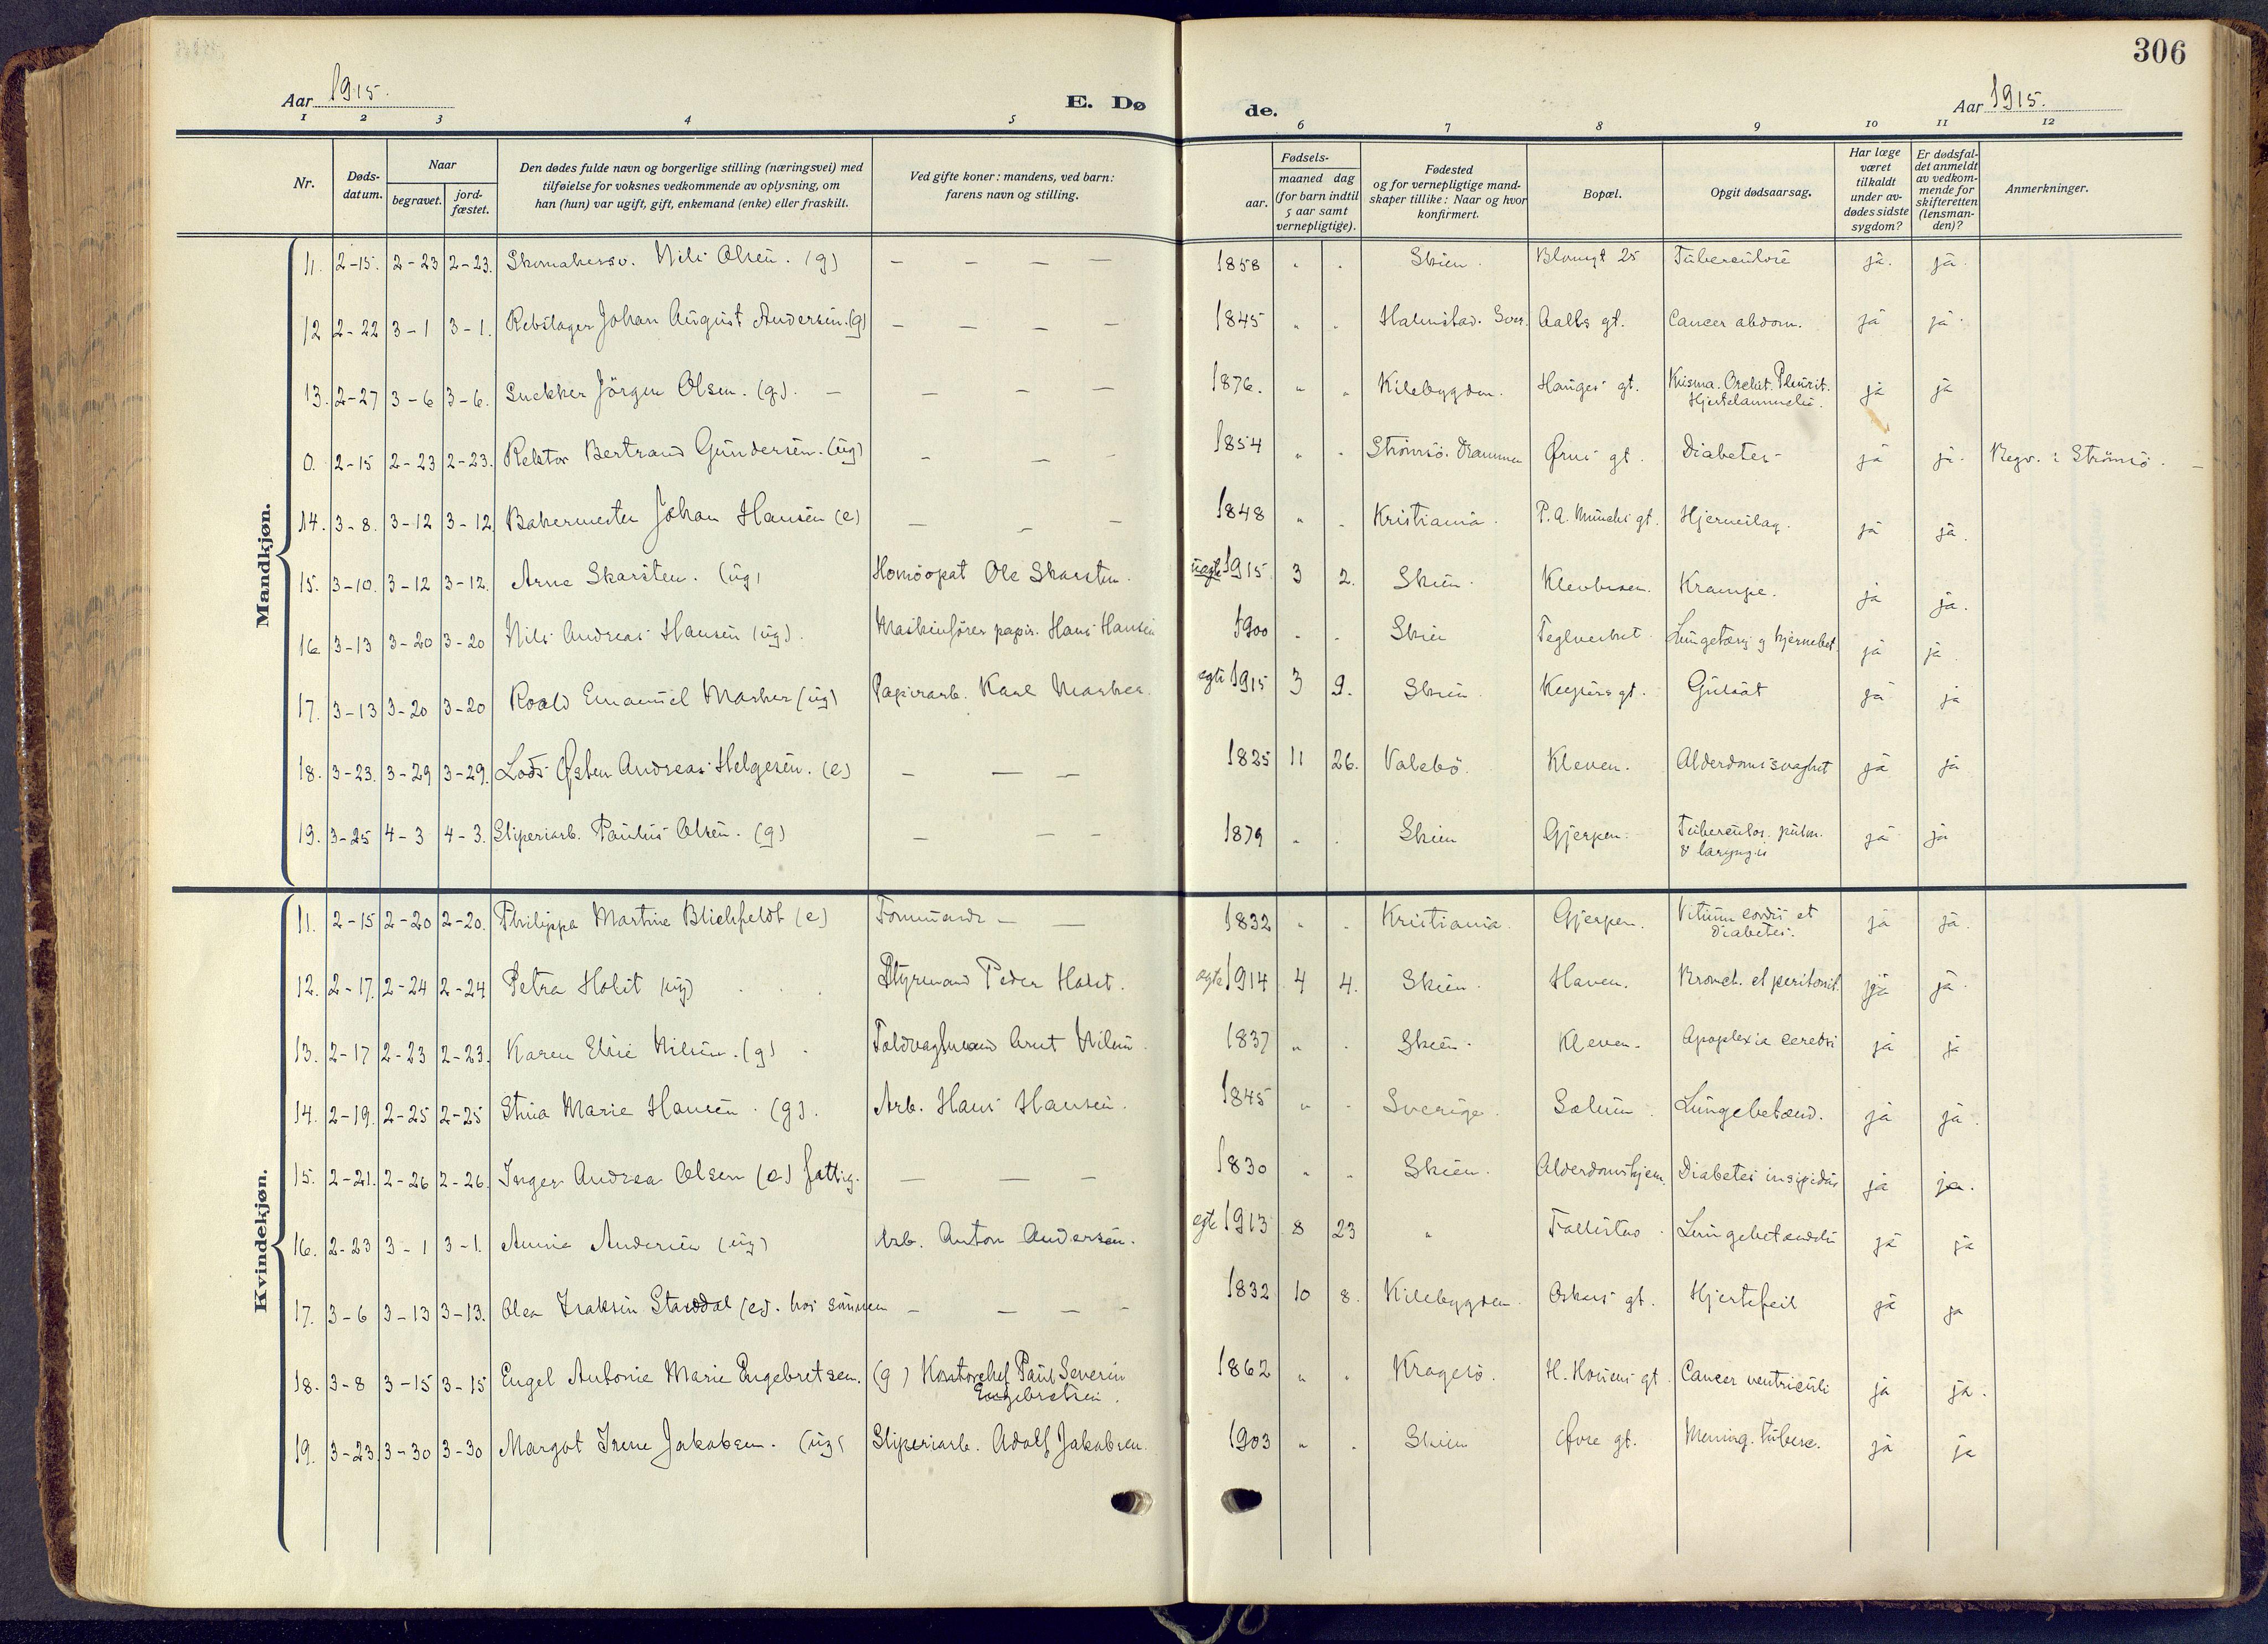 306
Aar 1915. E. Dø de. Aar 1915.
1 2 3 4 5 6 7 8 9 10 11 12
Nr. Døds-datum. Naar begravet. jord-fæstet. Den dødes fulde navn og borgerlige stilling (næringsvei) med tilføielse for voksnes vedkommende av oplysning, om han (hun) var ugift, gift, enkemand (enke) eller fraskilt. Ved gifte koner: mandens, ved barn: farens navn og stilling. Fødsels- aar. maaned dag (for barn indtil 5 aar samt vernepligtige). Fødested og for vernepligtige mandskaper tillike: Naar og hvor konfirmert. Bopæl. Opgit dødsaarsag. Har læge været tilkaldt under avdødes sidste sygdom? Er dødsfaldet anmeldt av vedkommende for skifteretten (lensmanden)? Anmerkninger.
Mandkjøn.
11. 2-15. 2-23 2-23. Skomakersv. Nils Olsen. (g) — — — — 1858 " . Skien. Blomgt 25 Tuberculose ja. ja.
12 2-22 3-1 3-1. Rebslager Johan August Andersen. (g) — — — — 1845 " . Halmstad. Sver. Aalls gt. Cancer abdom. ja ja.
13. 2-27 3-6 3-6. Snekker Jörgen Olsen. (g). — — — — 1876. " " Kilebygden. Hauges gt. Pleurit. ja ja
0. 2-15 2-23 2-23. Rektor Bertrand Gundersen. (ug) — — — 1854 " . Strömsö. Drammen Ørns gt. Diabetes- ja ja. Begr. i Strömsö. —
14. 3-8. 3-12 3-12 Bakermester Johan Hansen (e) — — — 1848 " . Kristiania. P.A. Munchs gt. Hjerneslag. ja ja.
15. 3-10. 3-12 3-12. Arne Skarsten. (ug) Homöopat Ole Skarsten. uegte 1915 3 2. Skien. Krampe. ja ja.
16 3-13 3-20 3-20 Nils Andreas Hansen (ug). Maskinfører papir. Hans Hansen 1900 . . Skien Teglverket ja ja.
17. 3-13 3-20 3-20 Roald Emanuel Marker (ug) Papirarb. Karl Marker. egte 1915 3 9. Skien Keysers gt. Gulsot ja ja
18. 3-23. 3-29 3-29. Lods Østen Andreas Helgesen. (e) — — — 1825 11 26. Valebö. Kleven. Alderdomssvaghet ja ja
19. 3-25 4-3 4-3. Sliperiarb. Paulus Olsen. (g) — — — 1879 " . Skien Gjerpen. Tuberculos. pulm. & laryngis ja ja
Kvindekjøn.
11. 2-15 2-20 2-20. Philippa Martine Blichfeldt (e) — — 1832 " . Kristiania. Gjerpen. Vitium cordis et diabetes. ja ja.
12. 2-17. 2-24 2-24 Petra Holst (ug) Styrmand Peder Holst. egte 1914 4 4. Skien. Haven. Bronch. et peritonit. ja ja.
13. 2-17 2-23 2-23. Karen Elise Nilsen. (g) Toldvagtmand Arnt Nilsen. 1837 " . Skien. Kleven. Apoplexia cerebri ja ja
14. 2-19. 2-25 2-25 Stina Marie Hansen. (g). Arb. Hans Hansen. 1845 " . Sverige. Solum. Lungebetænd. ja ja.
15. 2-21. 2-26 2-26. Inger Andrea Olsen (e) fattig. — — — 1830 " . Skien. Alderdomshjem. Diabetes insipidus ja ja.
16. 2-23 3-1 3-1. Annie Andersen (ug) Arb. Anton Andersen. egte 1913 8 23 " Follestad. Lungebetændelse ja ja
17. 3-6 3-13 3-13. Olea Isaksen Stavdal (e). hos sönnen — — — — 1832 10 8. Kilebygden. Oskars gt. Hjertefeil ja ja
18. 3-8 3-15 3-15 Engel Antonie Marie Engebretsen. (g) Kontorchef Paul Severin Engebretsen. 1862 " . Kragerö. H. Housens gt. Cancer ventriculi ja ja.
19. 3-23. 3-30 3-30 Margot Irene Jakobsen. (ug) Sliperiarb. Adolf Jakobsen. 1903 " . Skien Øvre gt. Mening. tuberc. ja ja